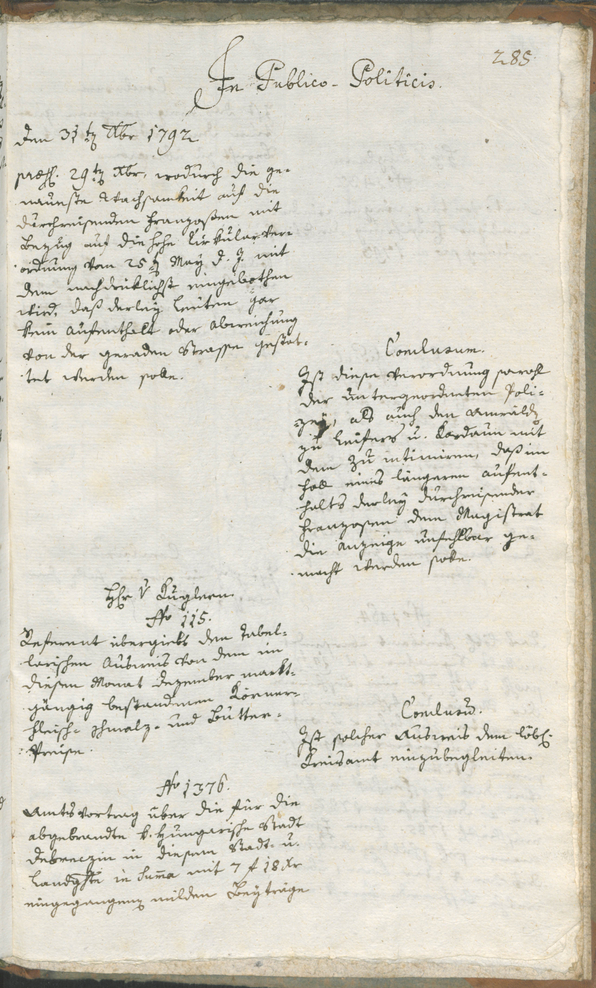 285.
In Publico-Politicis.
den 31ten Xbr 1792
præs. 29ten Xbr, wodurch die ge-
naueste Wachsamkeit auf die
durchreisenden Franzosen mit
Bezug auf die hohe Circular Ver-
ordnung von 25ten May d. J. mit
dem nachdrüklichst eingebothen
wird, daß derley Leuten gar
kein Aufenthalt oder Abweichung
von der geraden Strasse gestat-
tet werden solle.
Conclusum.
Ist diese Verordnung sowohl
der untergeordneten Poli-
zey, als auch den Anwäld
zu Leifers u. Kardaun mit
dem zu intimiren, daß im
Fall eines längeren Aufent-
halts derley durchreisender
Franzosen dem Magistrat
die Anzeige unfehlbar ge-
macht werden solle.
Hr v Kuglern.
No 115.
Referent übergiebt den Tabel-
larischen Ausweis von dem im
diesen Monat Dezember markt-
gängig bestandenen Körner-
Fleisch- Schmalz- und Butter-
Preise.
Conclusum.
Ist solcher Ausweis dem löbl.
Kreisamt einzubegleiten.
No 1376.
Amtsvortrag über die für die
abgebrandte k. Hungarische Stadt
Debreczin in diesem Stadt- u.
Landgste in Summa mit 7 f 18 xr
eingegangenen milden Beyträge